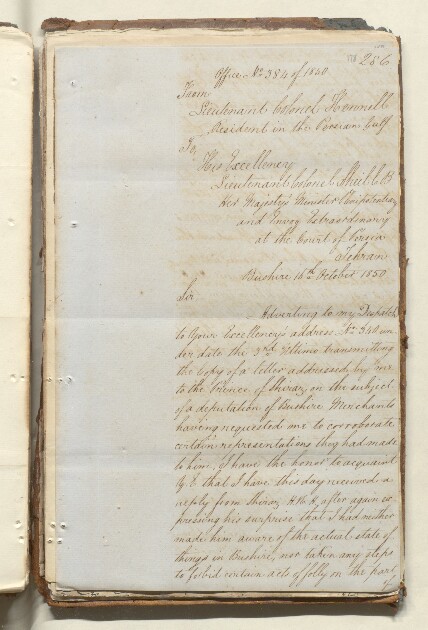 256
Office No 384 of 1850
From
Lieutenant Colonel Hennell
Resident in the Persian Gulf
To,
His Excellency
Lieutenant Colonel Sheil C.B
Her Majesty's Minister Plenipotentiary
and Envoy Extraordinary
at the Court of Persia
Tehran
Bushire 16th October 1850
Sir
Adverting to my Dispatch
to Your Excellency's address No 340 un-
der date the 3rd Ultimo transmitting
the Copy of a letter addressed by me
to the Prince of Shiraz, on the subject
of a deputation of Bushire Merchants
having requested me to corroborate
certain representations they had made
to him, I have the honor to acquaint
Y. E. that I have this day received a
reply from Shiraz, H. R. H. after again ex-
pressing his surprise that I had neither
made him aware of the actual state of
things in Bushire, nor taken any steps
to forbid certain acts of folly on the part
of